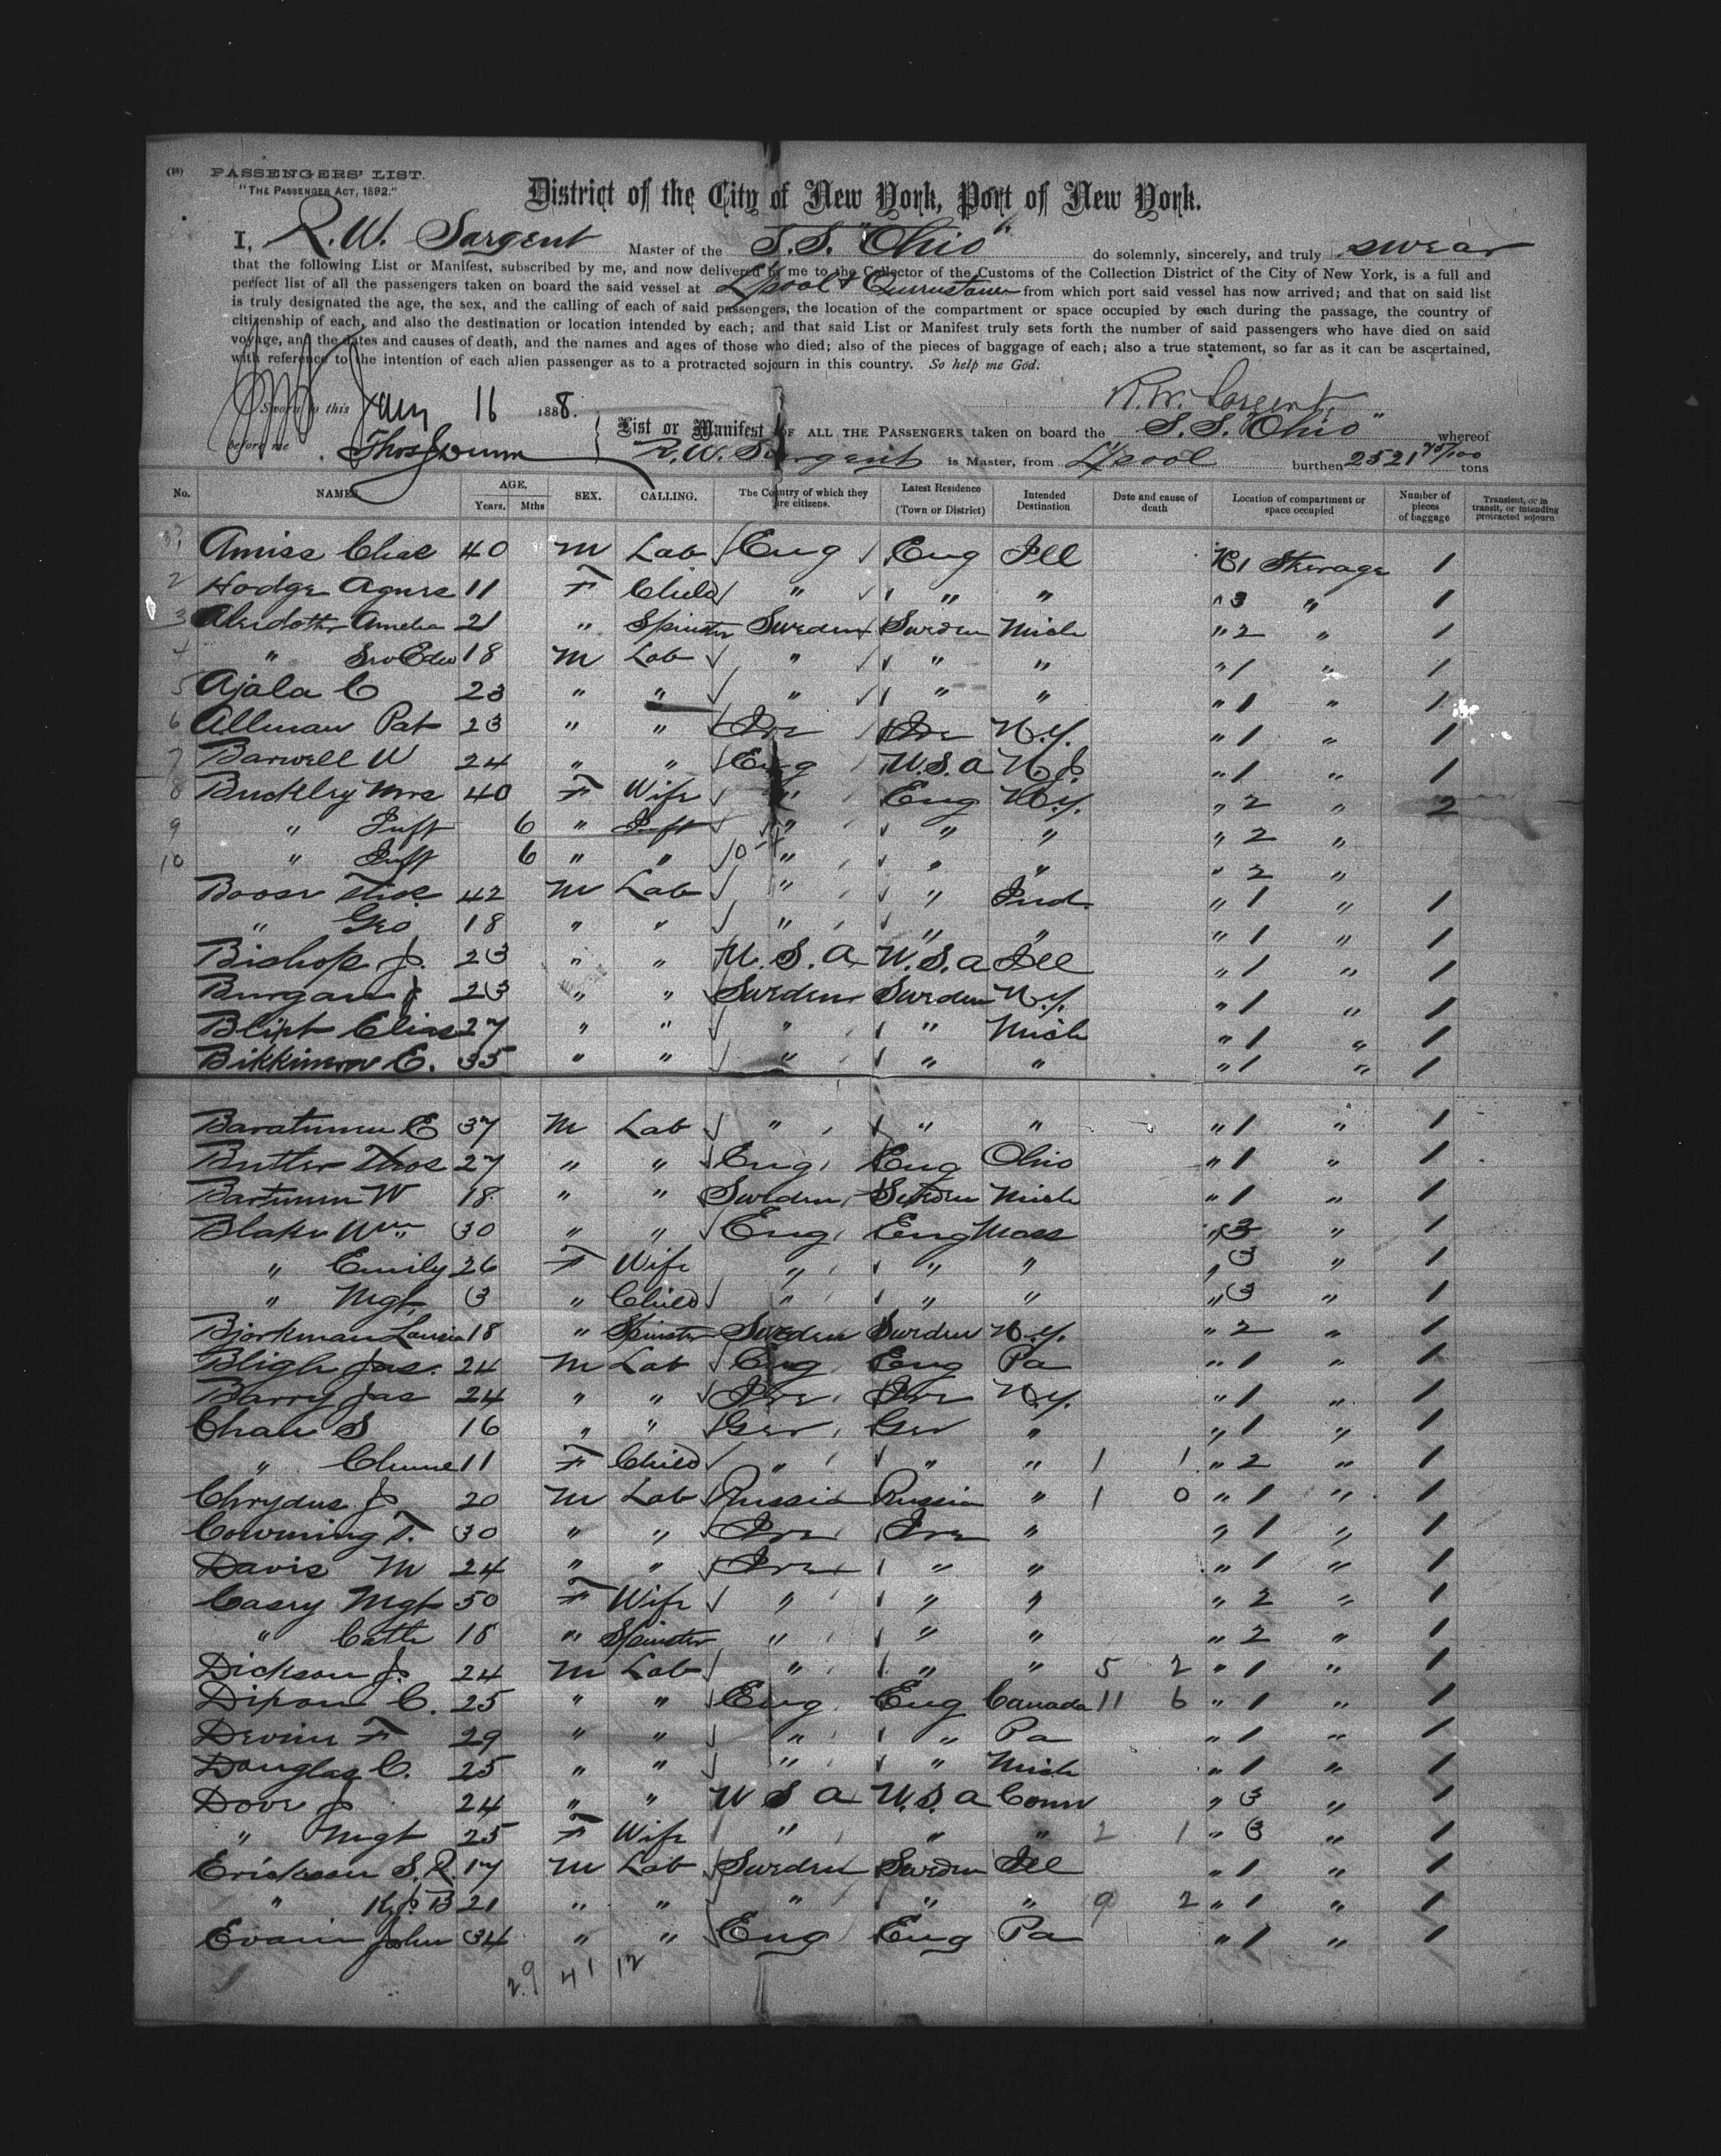 (18) PASSENGERS' LIST.
"THE PASSENGER ACT, 1882."
District of the City of New York, Port of New York.
I, R. W. Sargent Master of the S.S. "Ohio" do solemnly, sincerely, and truly swear
that the following List or Manifest, subscribed by me, and now delivered by me to the Collector of the Customs of the Collection District of the City of New York, is a full and
perfect list of all the passengers taken on board the said vessel at L'pool & Queenstown from which port said vessel has now arrived; and that on said list
is truly designated the age, the sex, and the calling of each of said passengers, the location of the compartment or space occupied by each during the passage, the country of
citizenship of each, and also the destination or location intended by each; and that said List or Manifest truly sets forth the number of said passengers who have died on said
voyage, and the dates and causes of death, and the names and ages of those who died; also of the pieces of baggage of each; also a true statement, so far as it can be ascertained,
with reference to the intention of each alien passenger as to a protracted sojourn in this country. So help me God.
R. W. Sargent
Sworn to this Jany 16 1888.
before me Thos Dunn
List or Manifest OF ALL THE PASSENGERS taken on board the S.S. "Ohio" whereof
R. W. Sargent is Master, from L'pool burthen 2521 tons
No. NAMES. AGE. Years. Mths SEX. CALLING. The Country of which they are citizens. Latest Residence (Town or District) Intended Destination Date and cause of death Location of compartment or space occupied Number of pieces of baggage Transient, or in transit, or intending protracted sojourn
Amiss Chas 40 M Lab Eng Eng Ill No 1 Steerage 1
2 Hodge Agnes 11 F Child " " " " 3 " 1
3 Amelia 21 " Spinster Sweden Sweden Mich " 2 " 1
4 " 18 M Lab " " " " 1 " 1
5 Ajala C 23 " " " " " " 1 " 1
6 Allman Pat 23 " " Ire Ire N.Y. " 1 " 1
7 Barwell W 24 " " Eng U.S.A N.J. " 1 " 1
8 Buckley Mrs 40 F Wife " Eng N.Y. " 2 " 2
9 " Inft 6 " Inft " " " " 2 "
10 " Inft 6 " " " " " " 2 "
42 M Lab " " Ind. " 1 " 1
" Geo 18 " " " " " " 1 " 1
Bishop J. 23 " " U.S.A U.S.A Ill " 1 " 1
Burgan J 23 " " Sweden Sweden N.Y. " 1 " 1
Elias 27 " " " " Mich " 1 " 1
E. 35 " " " " " " 1 " 1
E 37 M Lab " " " " 1 " 1
Butler Thos 27 " " Eng Eng Ohio " 1 " 1
W 18 " " Sweden Sweden Mich " 1 " 1
Blake Wm 30 " " Eng Eng Mass " 3 " 1
" Emily 26 F Wife " " " " 3 " 1
" Mgt 3 " Child " " " " 3 " 1
Bjorkman 18 " Spinster Sweden Sweden N.Y. " 2 " 1
Bligh Jas. 24 M Lab Eng Eng Pa " 1 " 1
Barry Jas 24 " " Ire Ire N.Y. " 1 " 1
S 16 " " Ger Ger " " 1 " 1
" 11 F Child " " " 1 1 " 2 " 1
Chrydus J 20 M Lab Russia Russia " 1 0 " 1 " 1
Cowming T. 30 " " Ire Ire " " 1 " 1
Davis M 24 " " Ire " " " 1 " 1
Casey Mgt 50 F Wife " " " " 2 " 1
" Cath 18 " Spinster " " " " 2 " 1
Dickson J. 24 M Lab " " " 5 2 " 1 " 1
Dixon C. 25 " " Eng Eng Canada 11 6 " 1 " 1
Devine F 29 " " " " Pa " 1 " 1
Douglas C. 25 " " " " Mich " 1 " 1
Dove J 24 " " U S A U.S.A Conn " 3 " 1
" Mgt 25 F Wife " " " 2 1 " 3 " 1
Erickson S.R. 17 M Lab Sweden Sweden Ill " 1 " 1
" 21 " " " " " 9 2 " 1 " 1
Evain John 34 " " Eng Eng Pa " 1 " 1
29 41 12